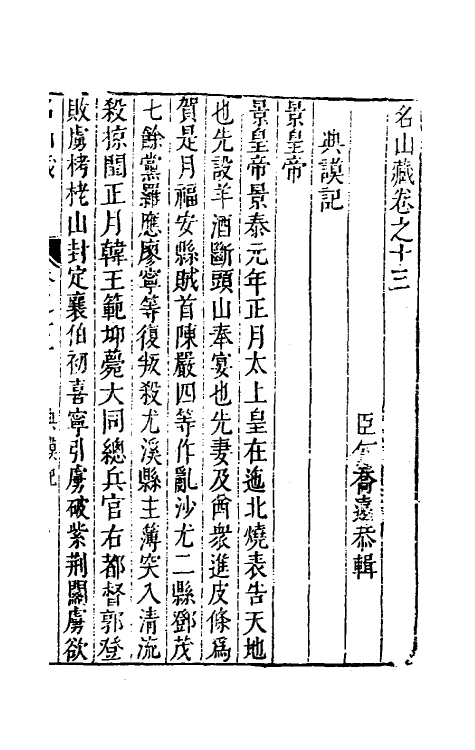 名山藏卷之十三
臣何喬遠恭輯
典謨記
景皇帝
景皇帝景泰元年正月太上皇在迤北燒表告天地
也先設羊酒斷頭山奉宴也先妻及酋衆進皮條爲
賀是月福安縣賊首陳嚴四等作亂沙尤二縣鄧茂
七餘黨羅應廖寧等復叛殺尤溪縣主薄突入清流
殺掠閏正月韓王範𡊟薨大同總兵官右都督郭登
敗虜栲栳山封定襄伯初喜寧引虜破紫荆關虜欲
典謨記